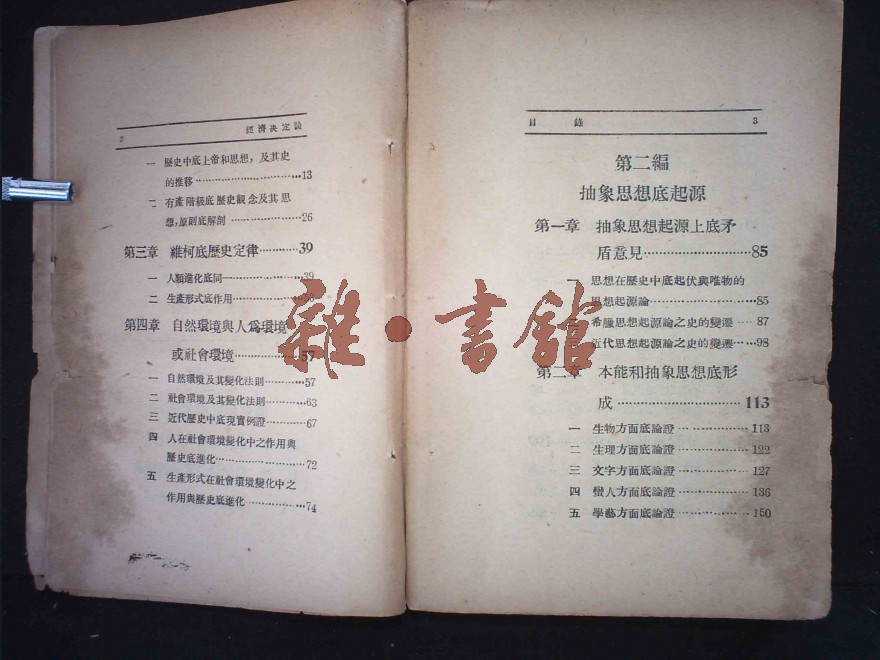 2 經濟決定論
一 歷史中底上帝和思想，及其史
的推移……………………13
二 有產階級底歷史觀念及其思
想，原則底解剖……………26
第三章 維柯底歷史定律………39
一 人類進化底同……………39
二 生產形式底作用…………
第四章 自然環境與人爲環境
或社會環境……………57
一 自然環境及其變化法則………57
二 社會環境及其變化法則………63
三 近代歷史中底現實例證………67
四 人在社會環境變化中之作用與
歷史底進化………………72
五 生產形式在社會環境變化中之
作用與歷史底進化……………74
目錄 3
第二編
抽象思想底起源
第一章 抽象思想起源上底矛
盾意見……………………85
一 思想在歷史中底起伏與唯物的
思想起源論…………………85
希臘思想起源論之史的變遷……87
近代思想起源論之史的變遷……98
第二章 本能和抽象思想底形
成……………………113
一 生物方面底論證……………113
二 生理方面底論證……………122
三 文字方面底論證……………127
四 蠻人方面底論證……………136
五 學藝方面底論證……………150
雜·書館